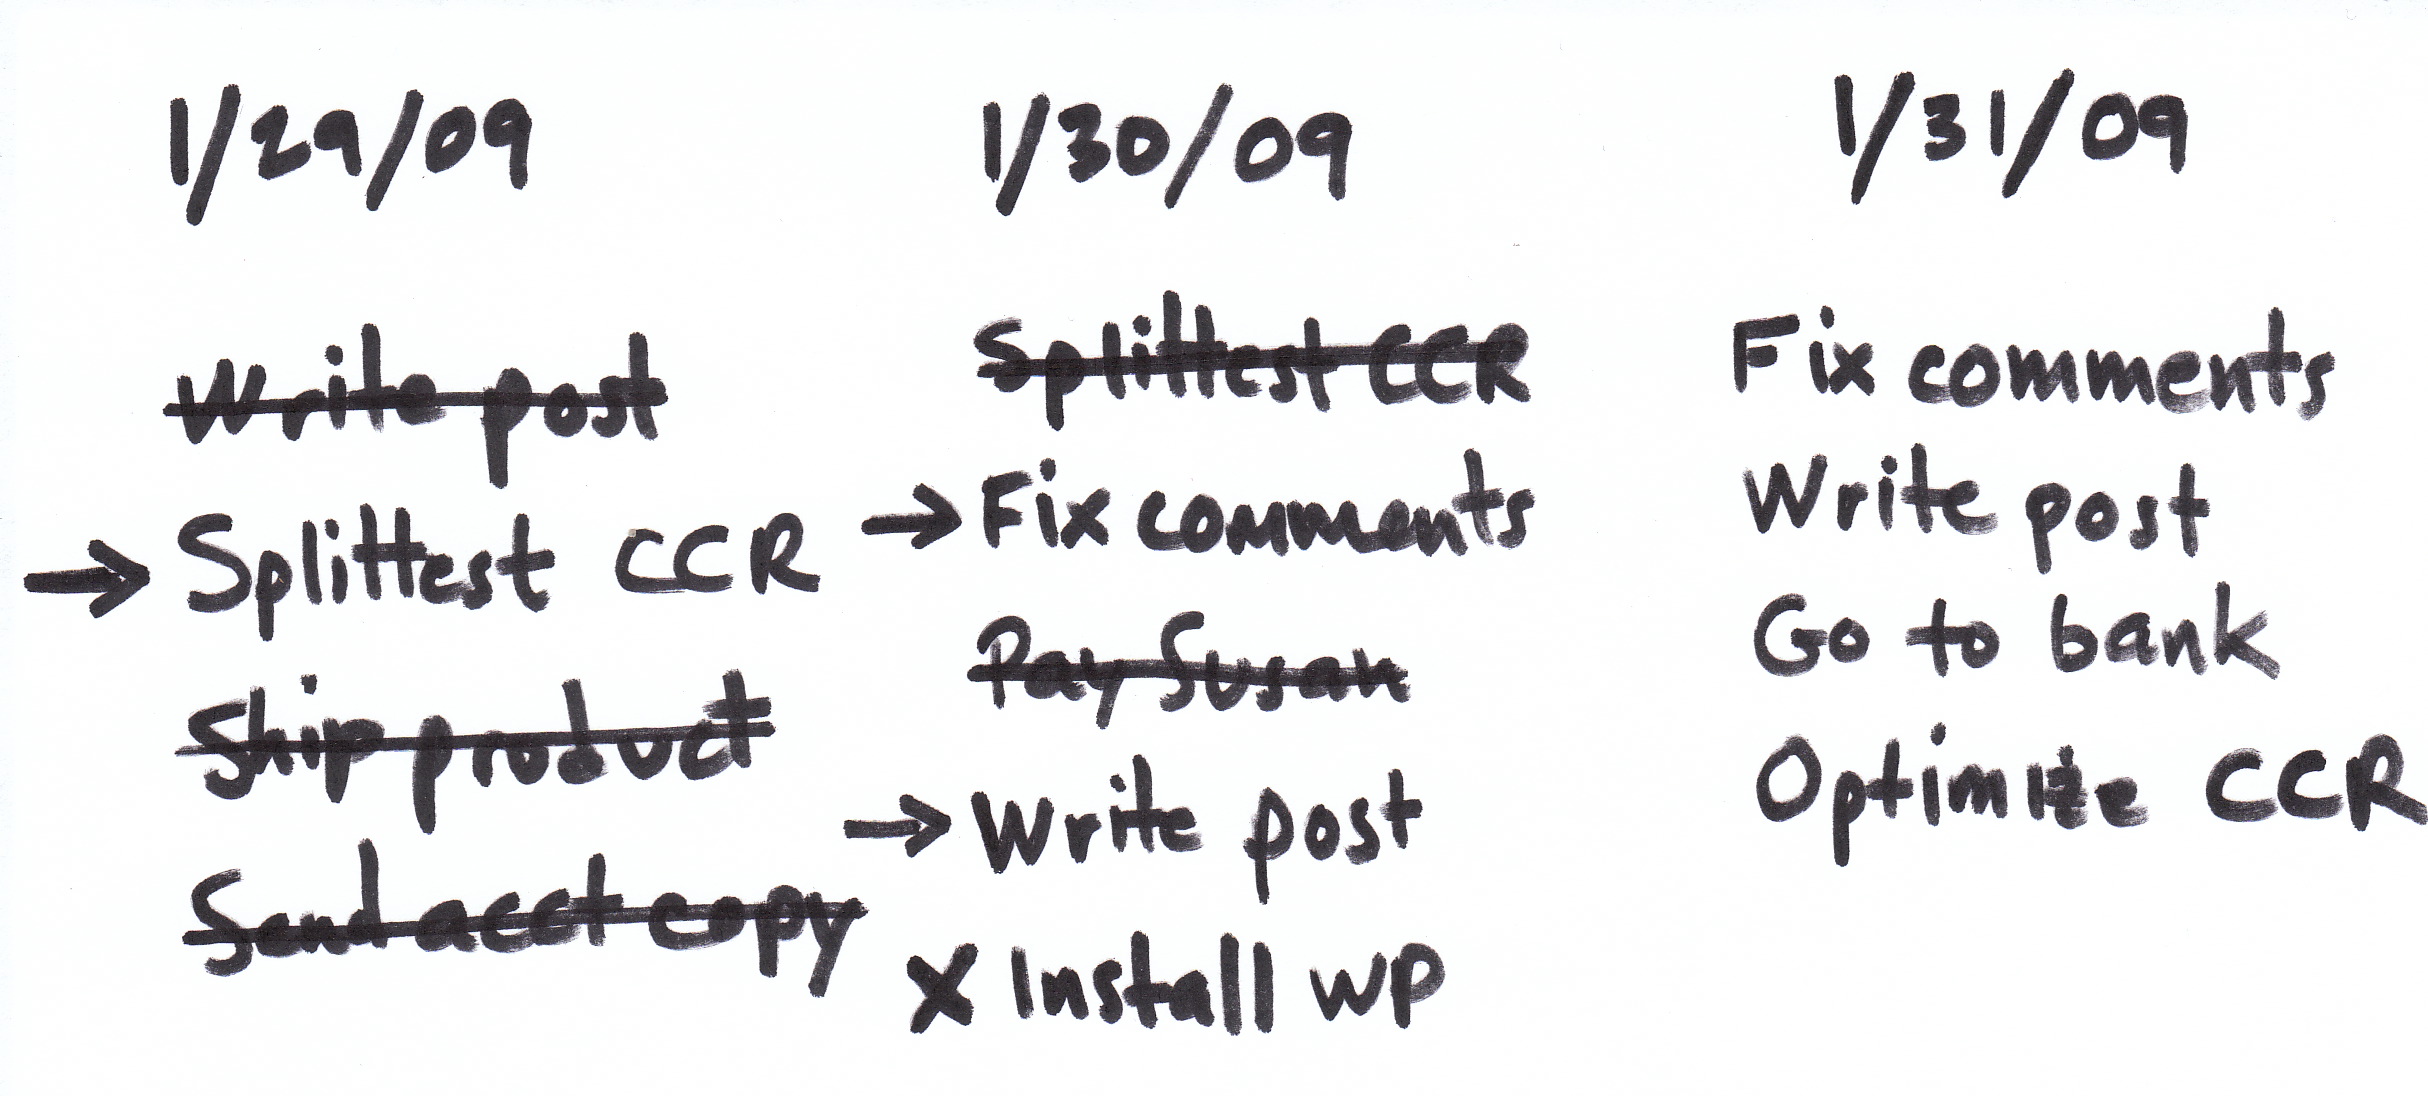 1/29/09
Write post
→ Splittest CCR
Ship product
Send acct copy
1/30/09
Splittest CCR
→ Fix comments
Pay Susan
→ Write post
X Install WP
1/31/09
Fix comments
Write post
Go to bank
Optimize CCR